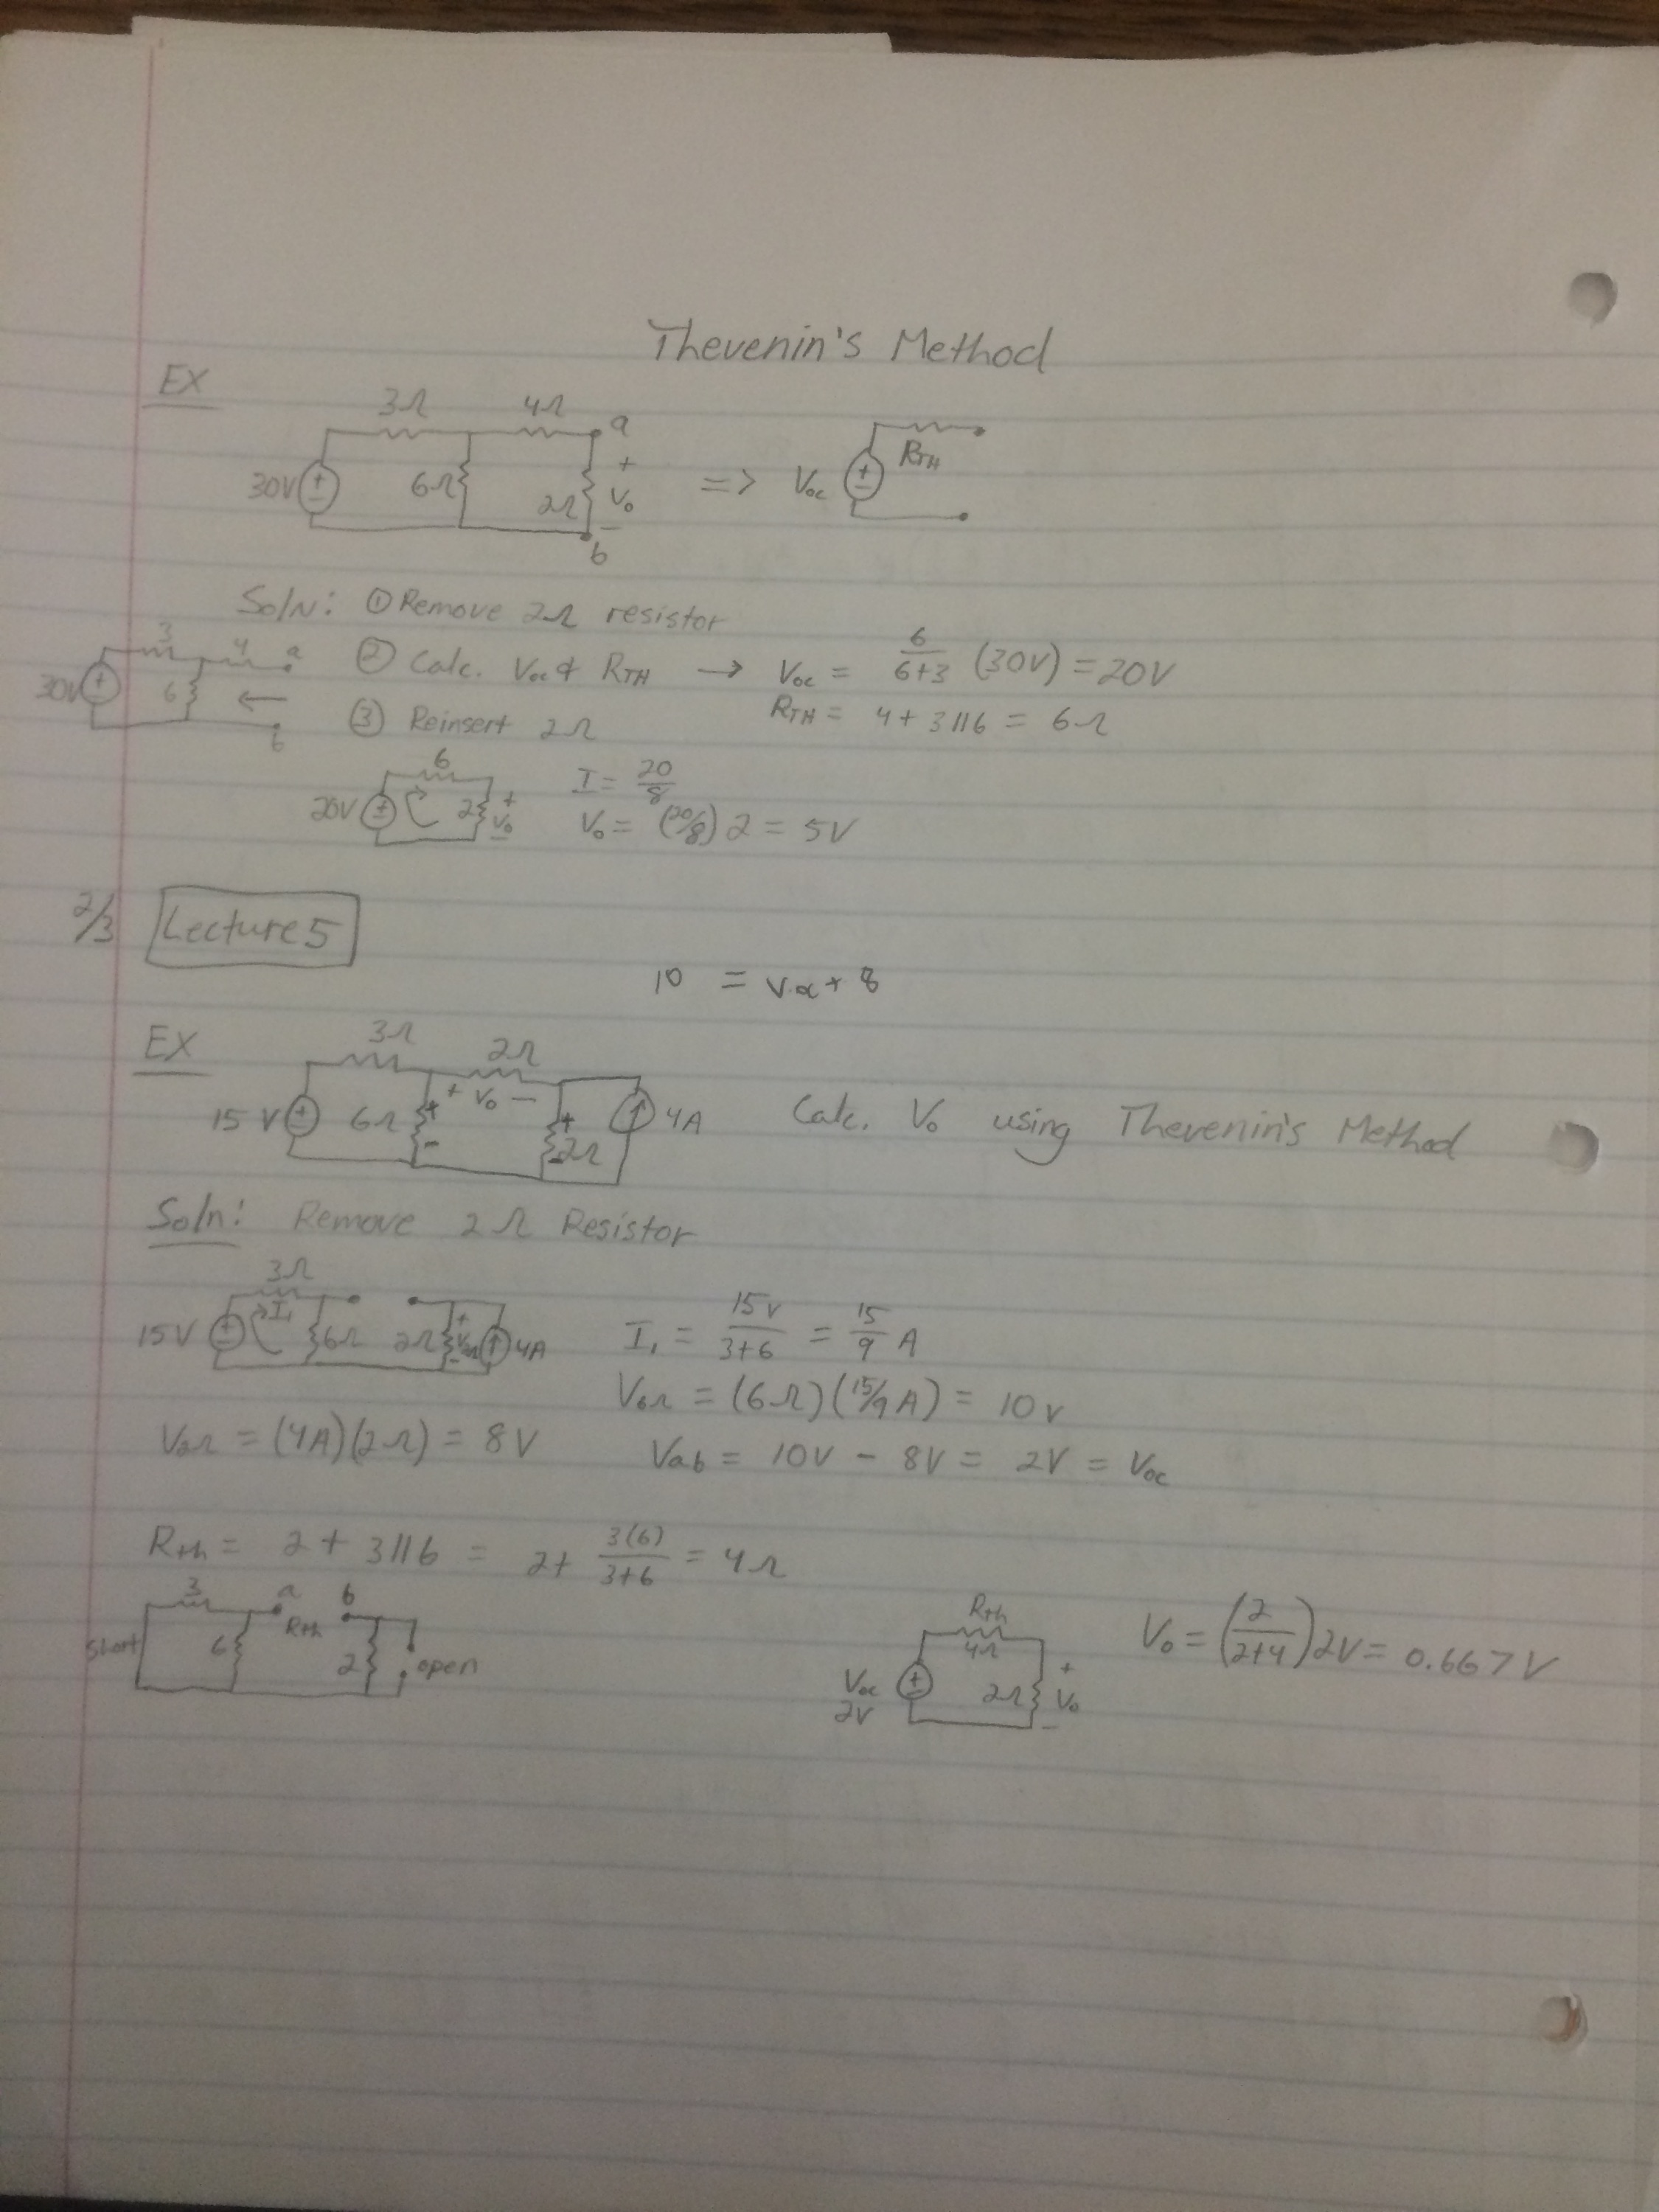 Thevenin's Method
EX
3Ω 4Ω a
30V + - 6Ω 2Ω + Vo - b => Voc + - RTH
Soln: ① Remove 2Ω resistor
3 4 a 30V + - 6 ← b
② Calc. Voc & RTH → Voc = 6/(6+3) (30V) = 20V
RTH = 4 + 3||6 = 6Ω
③ Reinsert 2Ω
6 20V + - 2 + Vo -
I = 20/8
Vo = (20/8) 2 = 5V
2/3 Lecture 5
10 = Voc + 8
EX
3Ω 2Ω
15 V + - 6Ω + - + Vo - + - 2Ω 4A Calc. Vo using Thevenin's Method
Soln: Remove 2Ω Resistor
3Ω
15V + - I₁ 6Ω 2Ω + V2Ω - 4A
I₁ = 15V/(3+6) = 15/9 A
V6Ω = (6Ω)(15/9 A) = 10V
V2Ω = (4A)(2Ω) = 8V
Vab = 10V - 8V = 2V = Voc
Rth = 2 + 3||6 = 2 + 3(6)/(3+6) = 4Ω
3 a b
short 6 Rth 2 open
Rth 4Ω
Voc 2V + - 2Ω + Vo -
Vo = (2/(2+4)) 2V = 0.667 V